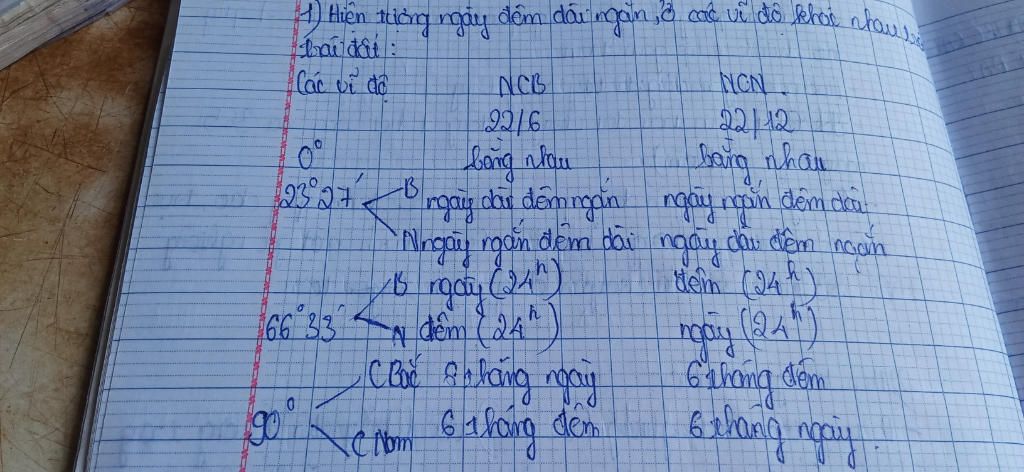 1) Hiện tượng ngày đêm dài ngắn, ở các vĩ độ khác nhau trên
trái đất:
Các vĩ độ NCB NCN
22/6 22/12
0° bằng nhau bằng nhau
23°27' B ngày dài đêm ngắn ngày ngắn đêm dài
N ngày ngắn đêm dài ngày dài đêm ngắn
66°33' B ngày (24h) đêm (24h)
N đêm (24h) ngày (24h)
90° C Bắc 6 tháng ngày 6 tháng đêm
C Nam 6 tháng đêm 6 tháng ngày.